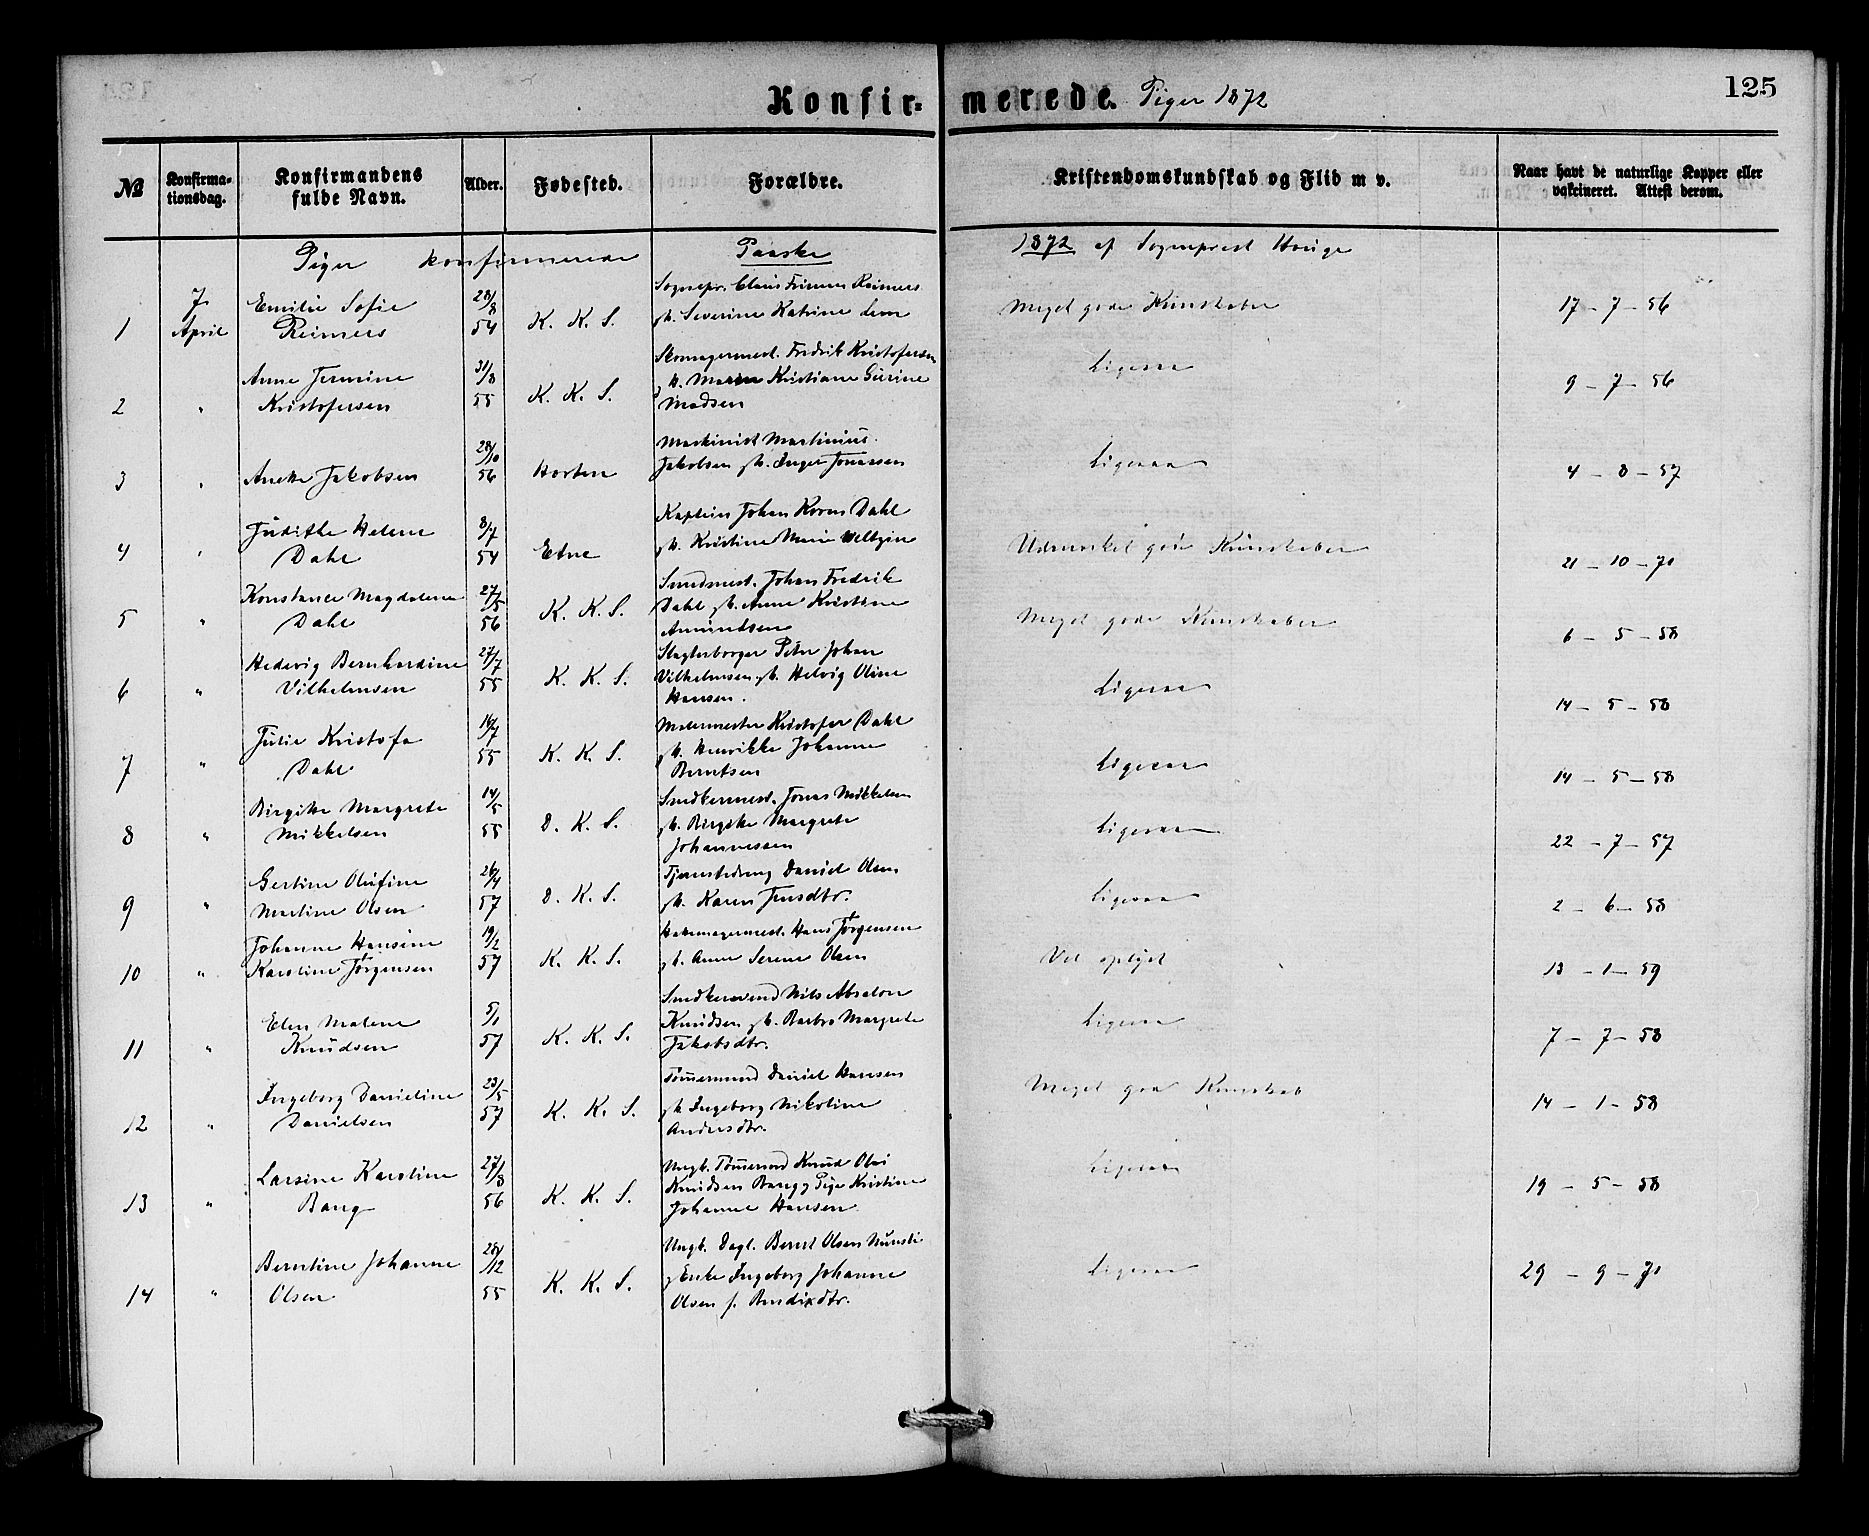 125
Konfir= merede. Piger 1872
No
Konfirma-
tionsdag.
Konfirmandens
fulde Navn.
Alder.
Fødested.
Forældre.
Kristendomskundskab og Flid m v.
Naar havt de naturlige Kopper eller
vakcineret. Attest derom.
Piger konfirmerede Paaske 1872 af Sogneprest Hauge
1 7 April Emilie Sofie Reimers 28/8 54 K. K. S.
Sognepr. Claus Frimann Reimers
gh. Severine Katrine Lem
Meget gode Kunskaber 17 - 7 - 56
2 " Anne Jermine Kristofersen 31/8 55 K. K. S.
Skomagermest. Fredrik Kristofersen
gh. Maren Kristiane Gurine
Madsen
Ligesaa 9 - 7 - 56
3 " Anette Jakobsen 28/10 56 Horten
Maskinist Martinius
Jakobsen gh. Inger Jonassen
Ligesaa 4 - 8 - 57
4 " Judithe Helene Dahl 8/7 54 Etne
Kaptein Johan Koren Dahl
gh. Kristine Marie
Udmerket gode Kunskaber 21 - 10 - 71
5 " Konstance Magdalena Dahl 27/5 56 K. K. S.
Smedmest. Johan Fredrik
Dahl gh. Anne Kristine
Amundsen
Meget gode Kunskaber 6 - 5 - 58
6 " Hedevig Bernhardine Vilhelmsen 27/7 55 K. K. S.
Slagterborger Peter Johan
Vilhelmsen gh. Helvig Oline
Hansen.
Ligesaa 14 - 5 - 58
7 " Julie Kristofa Dahl 16/7 55 K. K. S.
Malermester Kristofer Dahl
gh. Henrikke Johanne
Berntsen
Ligesaa 14 - 5 - 58
8 " Birgitte Margrete Mikkelsen 14/5 55 D. K. S.
Snedkermest. Jonas Mikkelsen
gh. Birgitte Margrete
Johannessen
Ligesaa 22 - 7 - 57
9 " Gertine Olufine Martine Olsen 26/4 57 D. K. S.
Tjenestedreng Daniel Olsen
gh. Karen Jensdtr.
Ligesaa 2 - 6 - 58
10 " Johanne Hansine Karoline Jørgensen 19/2 57 K. K. S.
Hattemagermest. Hans Jørgensen
gh. Anne Serene Olsen
Vel oplyst 13 - 1 - 59
11 " Elen Malene Knudsen 5/1 57 K. K. S.
Snedkersvend Nils Absalon
Knudsen gh. Barbro Margrete
Jakobsdtr.
Ligesaa 7 - 7 - 58
12 " Ingeborg Danieline Danielsen 23/5 57 K. K. S.
Tømmermand Daniel Hansen
gh Ingeborg Nikoline
Andersdtr.
Meget god Kunskab 14 - 1 - 58
13 " Larsine Karoline Bang 27/8 56 K. K. S.
Ungk. Tømmermd Knud Olai
Knudsen Bang og Pige Kristine
Johanne Hansen
Ligesaa 19 - 5 - 58
14 " Berntine Johanne Olsen 28/12 55 K. K. S.
Ungk. Dagl. Bernt Olsen
og Enke Ingeborg Johanne
Olsen f. Bendixdtr.
Ligesaa 29 - 9 - 71